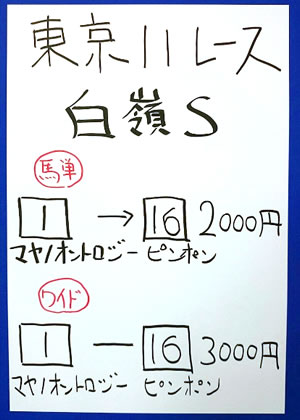 東京11レース
白嶺S
馬単
1 → 16 2000円
マヤノオントロジー ピンポン
ワイド
1 ー 16 3000円
マヤノオントロジー ピンポン